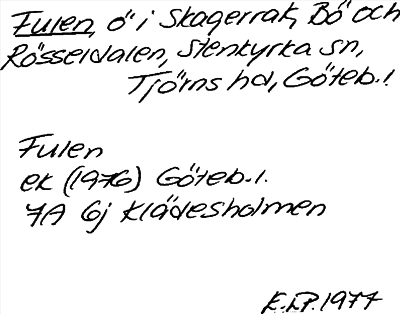 Fulen, ö i Skagerrak, Bö och
Rösseldalen, Stenkyrka sn,
Tjörns hd, Göteb.l.
Fulen
ek (1976) Göteb.l.
7A 6j Klädesholmen
E.LP. 1977